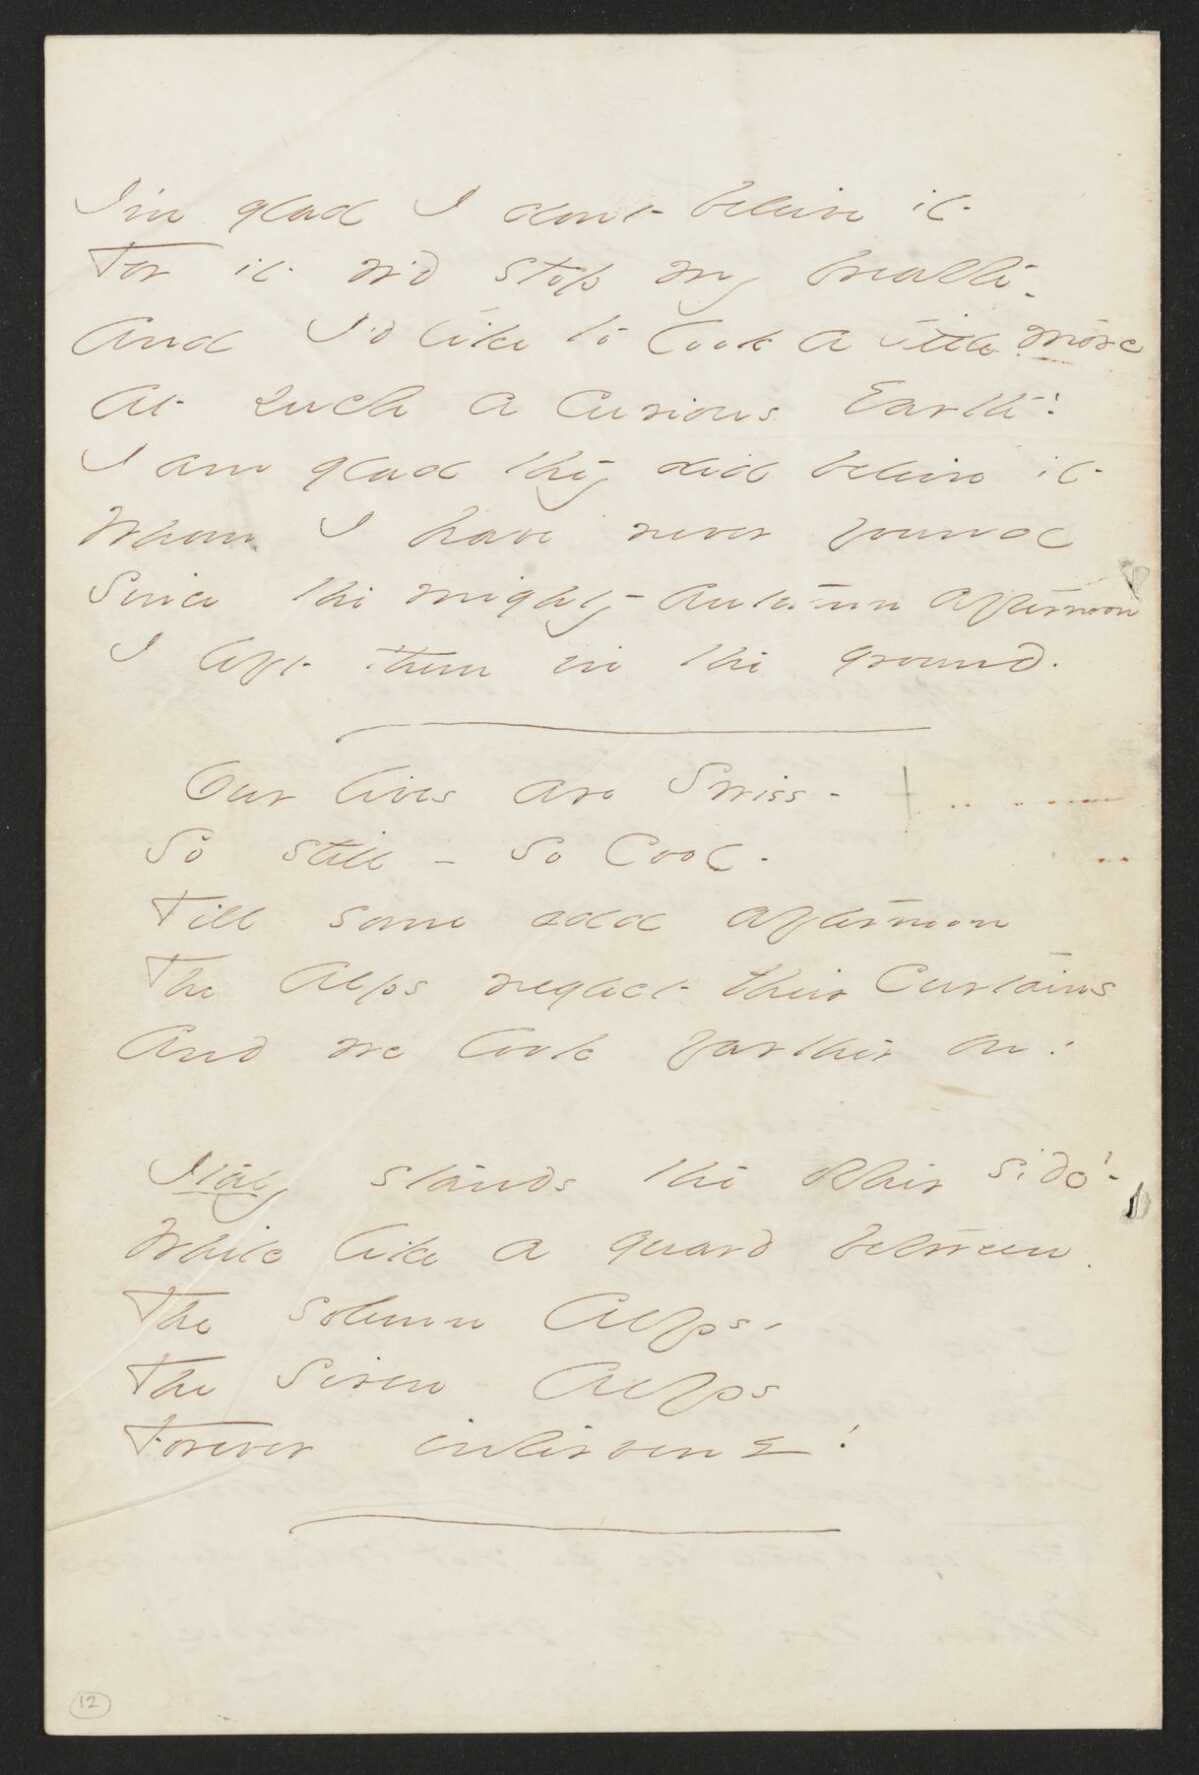 I'm glad I don't believe it
For it w'd stop my breath -
And I'd like to look a little more
At such a curious Earth!
I am glad they did believe it
Whom I have never found
Since the mighty Autumn afternoon
I left them in the ground.
Our lives are Swiss -
So still - so Cool -
Till some odd afternoon
The Alps neglect their Curtains
And we look farther on!
Italy stands the other side!
While like a guard between
The solemn Alps -
The siren Alps
Forever intervene!
12